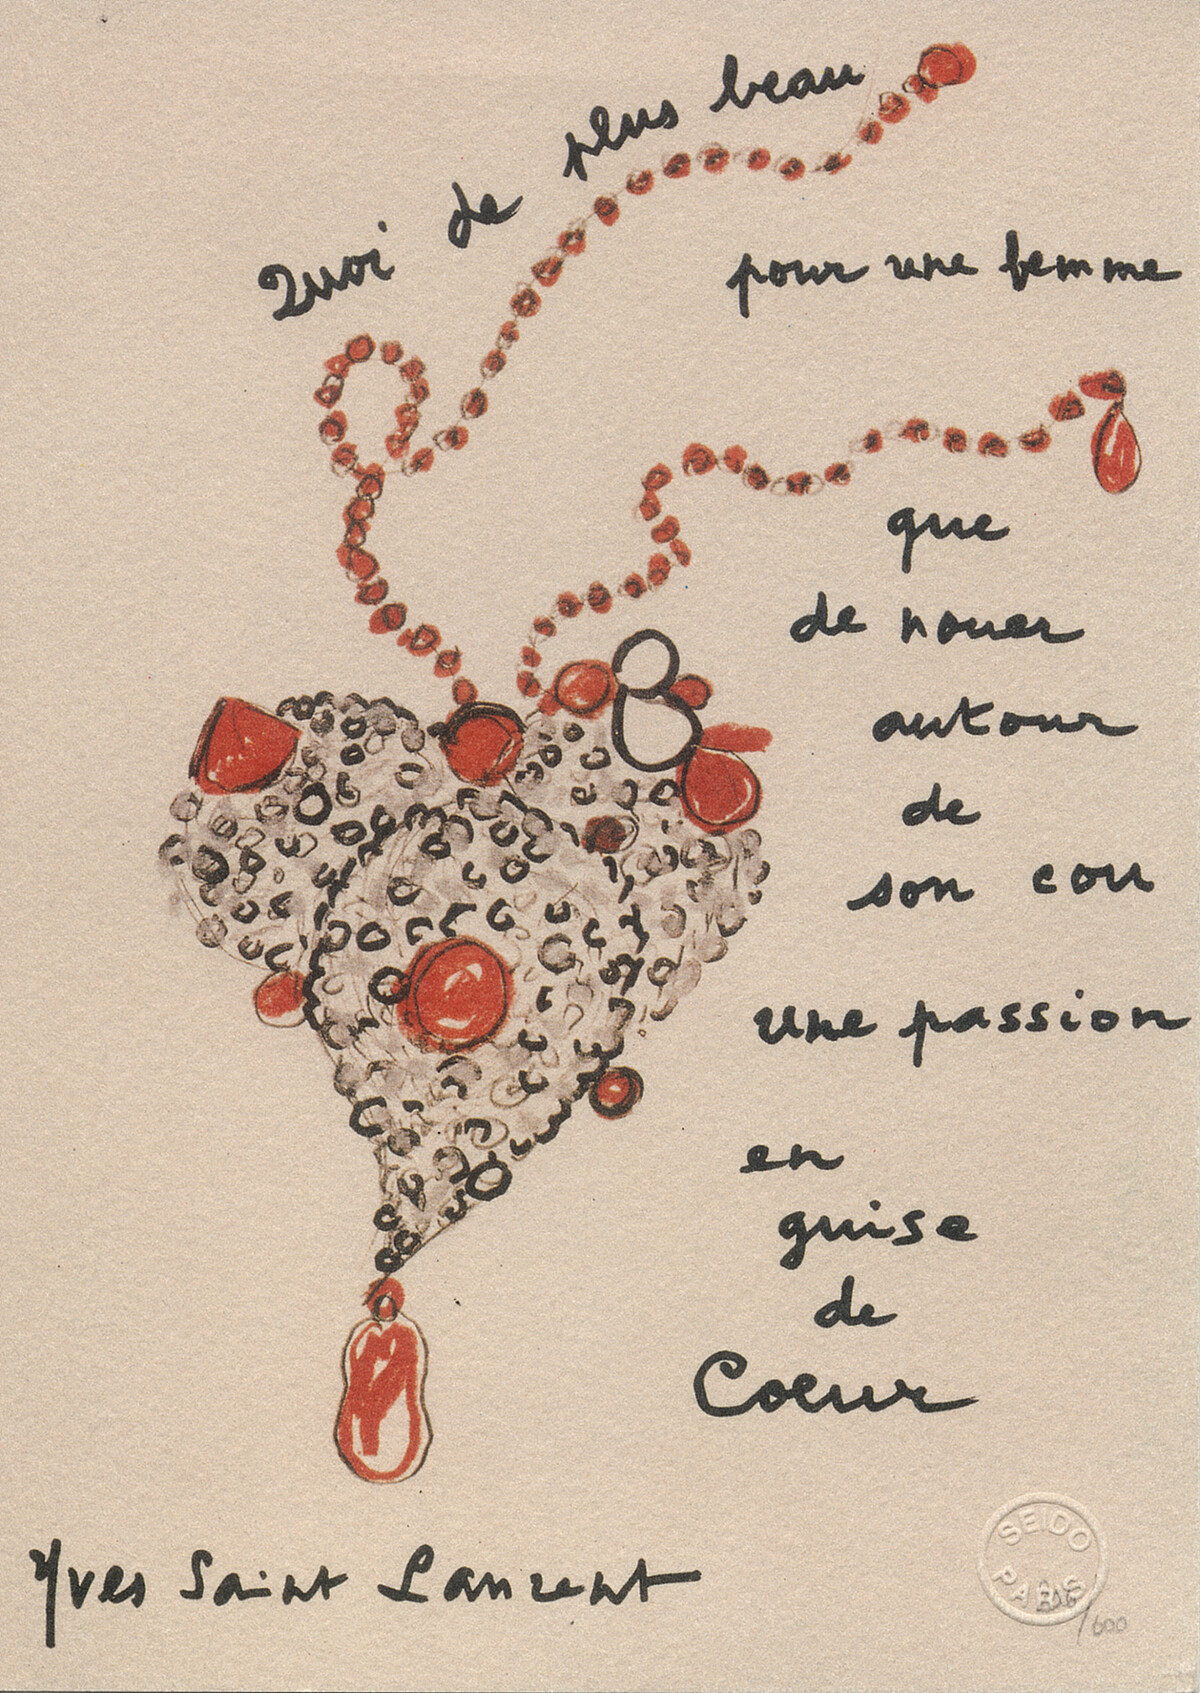 Quoi de plus beau
pour une femme
que
de nouer
autour
de
son cou
une passion
en
guise
de
Coeur
Yves Saint Laurent
SEIDO
PARIS
/600